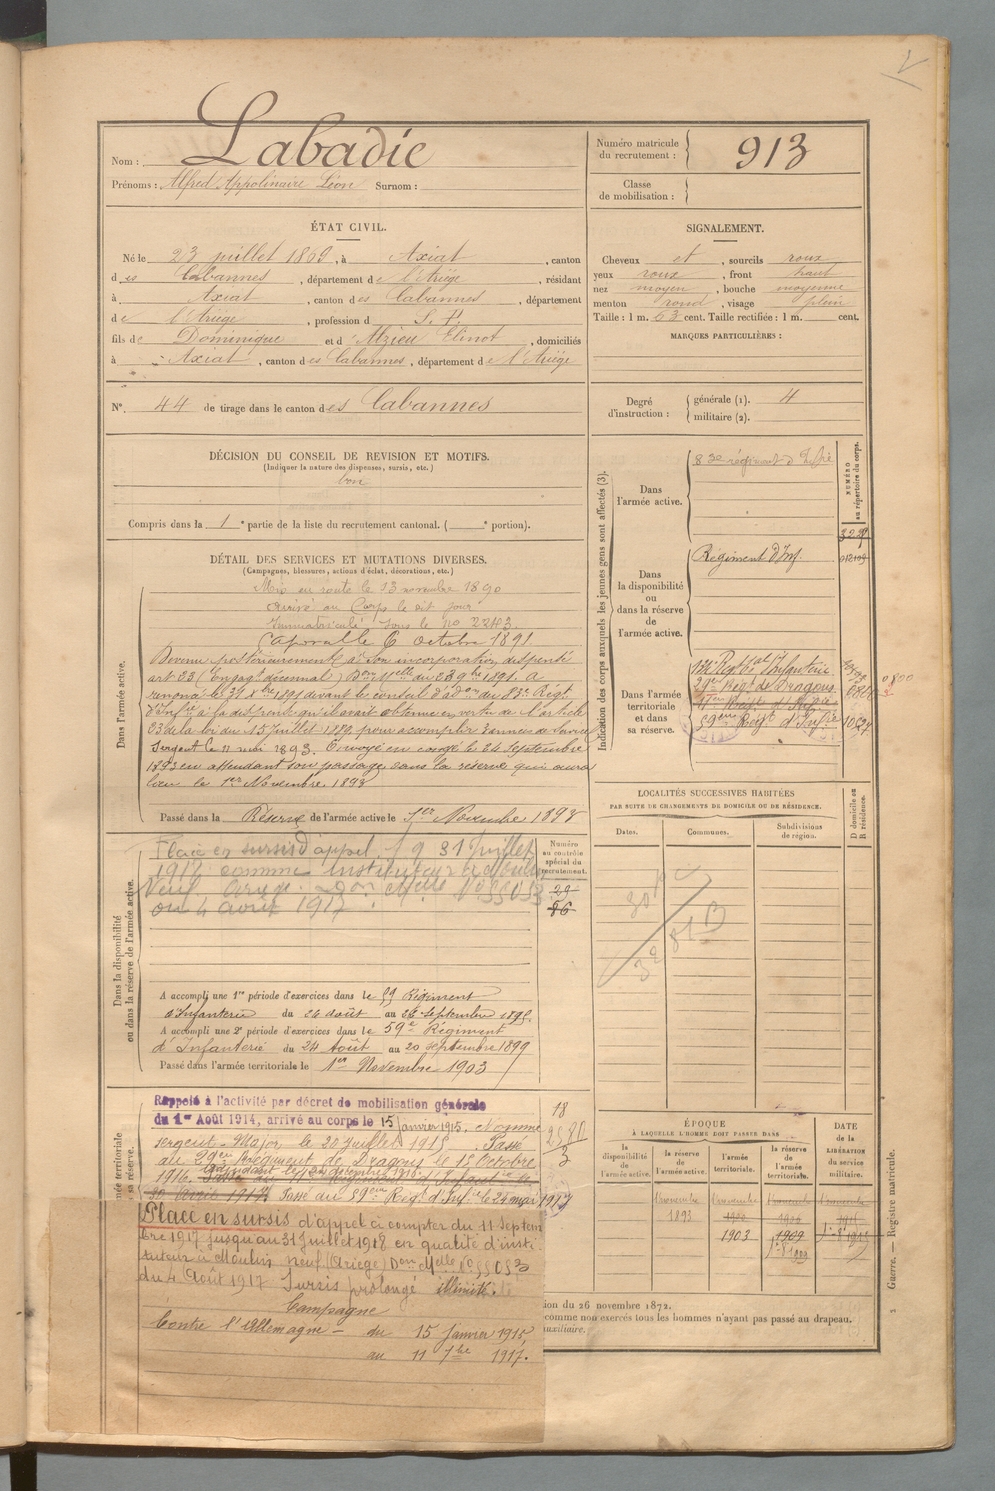 Nom : Labadie
Prénoms : Alfred Appolinaire Léon Surnom :
Numéro matricule du recrutement : 913
Classe de mobilisation :
ÉTAT CIVIL.
Né le 23 juillet 1869, à Axiat, canton
des Cabannes, département de l'Ariège, résidant
à Axiat, canton des Cabannes, département
de l'Ariège, profession d
fils de Dominique et d'Alzieu, domiciliés
à Axiat, canton des Cabannes, département de l'Ariége
N° 44 de tirage dans le canton des Cabannes
SIGNALEMENT.
Cheveux et, sourcils roux
yeux roux, front haut
nez moyen, bouche moyenne
menton rond, visage plein
Taille : 1 m. 63 cent. Taille rectifiée : 1 m. cent.
MARQUES PARTICULIÈRES :
Degré d'instruction : générale (1). 4
militaire (2).
DÉCISION DU CONSEIL DE REVISION ET MOTIFS.
(Indiquer la nature des dispenses, sursis, etc.)
bon
Compris dans la 1e partie de la liste du recrutement cantonal. ( e portion).
DÉTAIL DES SERVICES ET MUTATIONS DIVERSES.
(Campagnes, blessures, actions d'éclat, décorations, etc.)
Dans l'armée active.
Mis en route le 13 novembre 1890
arrivé au Corps le dit jour
Immatriculé sous le no 2243
Caporal le 6 octobre 1891
Devenu postérieurement à son incorporation dispensé
art 23 (Engagt décennal) Don Melle du 23 9bre 1891. A
renoncé le 31 Xbre 1891 devant le conseil d'adon du 83e Régt
d'Infie à la dispense qu'il avait obtenue en vertu de l'article
23 de la loi du 15 Juillet 1889 pour accomplir 3 années de Service
Sergent le 11 mai 1893. Envoyé en congé le 24 Septembre
1893 en attendant son passage dans la réserve qui aura
lieu le 1er Novembre 1893
Passé dans la Réserve de l'armée active le 1er Novembre 1893
Indication des corps auxquels les jeunes gens sont affectés (3).
NUMÉRO au répertoire du corps.
Dans l'armée active.
83e régiment d'Infie
Dans la disponibilité ou dans la réserve de l'armée active.
Régiment d'Inf.
Dans l'armée territoriale et dans sa réserve.
Régt d'Infanterie
29e Régt de Dragons
59eme Régt d'Infie
LOCALITÉS SUCCESSIVES HABITÉES
PAR SUITE DE CHANGEMENTS DE DOMICILE OU DE RÉSIDENCE.
Dates. Communes. Subdivisions de région. D domicile ou R résidence.
Dans la disponibilité ou dans la réserve de l'armée active.
Numéro au contrôle spécial du recrutement.
29
86
Placé en sursis d'appel 31 Juillet
1917 comme instituteur à Moulin
Neuf Ariège. Don Melle No 35053
du 4 août 1917
A accompli une 1re période d'exercices dans le 59 Régiment
d'Infanterie du 26 août au
A accompli une 2e période d'exercices dans le 59e Régiment
d'Infanterie du 24 Août au 20 septembre 1899
Passé dans l'armée territoriale le 1er Novembre 1903
Rappelé à l'activité par décret de mobilisation générale
du 1er Août 1914, arrivé au corps le 15 Janvier 1915. Nommé
sergent-Major le 20 juillet 1915 Passé
au 29em Régiment de Dragons le 18 Octobre
1916. Adjudant le 24 décembre 1916.
Passé au 59eme Régt d'Infie le 24 mai 1917
Placé en sursis d'appel à compter du 11 Septem
bre 1917 jusqu'au 31 Juillet 1918 en qualité d'insti
tuteur à Moulin neuf (Ariège) Don Melle No 35053
du 4 Août 1917 Sursis prolongé
Campagne
Contre l'Allemagne - du 15 Janvier 1915,
au 11 7bre 1917.
ÉPOQUE
À LAQUELLE L'HOMME DOIT PASSER DANS
la disponibilité de l'armée active. la réserve de l'armée active. l'armée territoriale. la réserve de l'armée territoriale.
DATE de la LIBÉRATION du service militaire.
1893 1903 1909
ion du 26 novembre 1872.
comme non exercés tous les hommes n'ayant pas passé au drapeau.
auxiliaire.
Guerre. — Registre matricule.